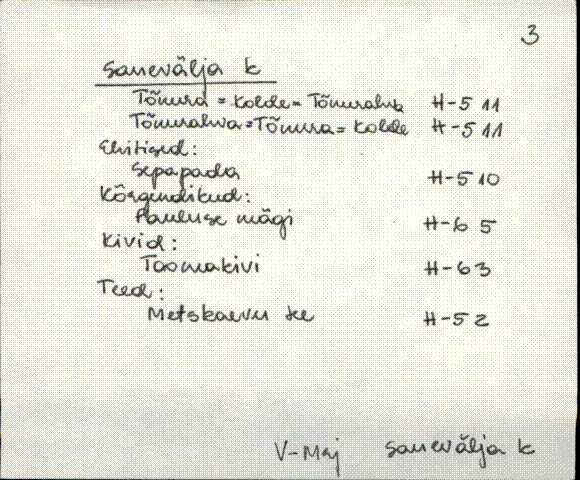 3
Sanevälja k
Tõnura = Kolde = Tõnurahva H-5 11
Tõnurahva = Tõnura = Kolde H-5 11
Ehitised:
Sepapada H-5 10
Kõrgendikud:
Pauluse mägi H-6 5
Kivid:
Toomakivi H-6 3
Teed:
Metskaevu tee H-5 2
V-Maj Sanevälja k